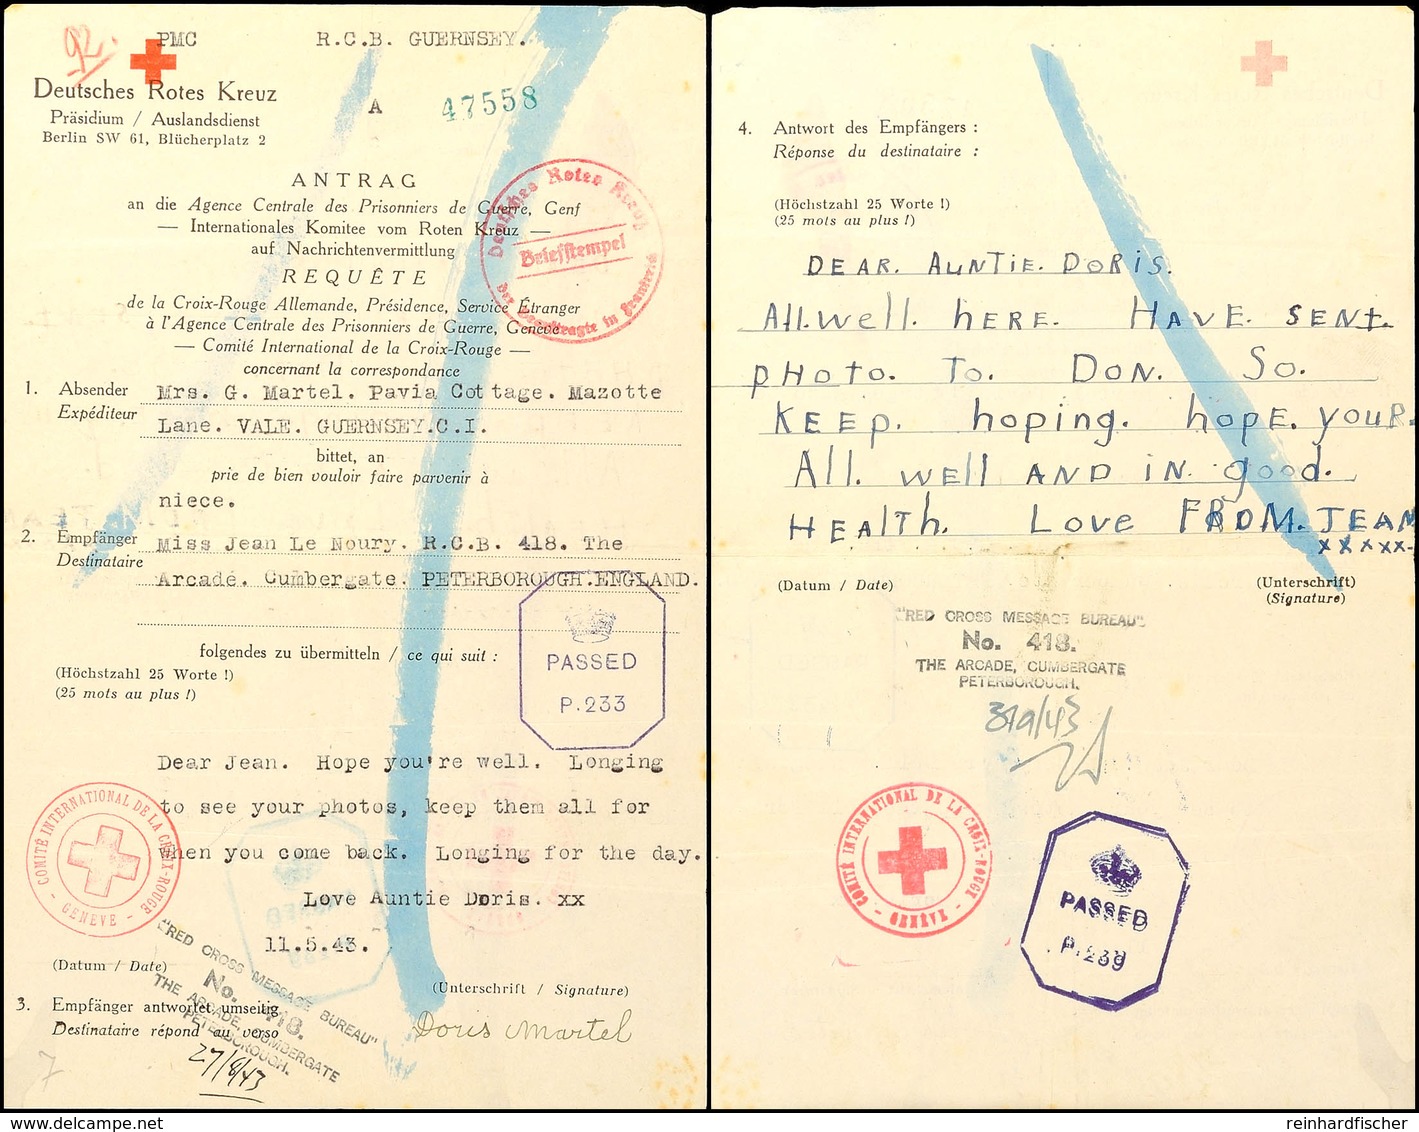 92.
PMC R.C.B. GUERNSEY.
Deutsches Rotes Kreuz
Präsidium / Auslandsdienst
Berlin SW 61, Blücherplatz 2
A 47558
ANTRAG
an die Agence Centrale des Prisonniers de Guerre, Genf
— Internationales Komitee vom Roten Kreuz —
auf Nachrichtenvermittlung
REQUÊTE
de la Croix-Rouge Allemande, Présidence, Service Étranger
à l'Agence Centrale des Prisonniers de Guerre, Genève
— Comité International de la Croix-Rouge —
concernant la correspondance
Deutsches Rotes Kreuz
Briefstempel
der Beauftragte in Frankreich
1. Absender Mrs. G. Martel. Pavia Cottage. Mazotte
Expéditeur
Lane. VALE. GUERNSEY.C.I.
bittet, an
prie de bien vouloir faire parvenir à
niece.
2. Empfänger Miss Jean Le Noury. R.C.B. 418. The
Destinataire
Arcade. Cumbergate. PETERBOROUGH.ENGLAND.
folgendes zu übermitteln / ce qui suit :
(Höchstzahl 25 Worte !)
(25 mots au plus !)
PASSED
P.233
Dear Jean. Hope you're well. Longing
to see your photos, keep them all for
when you come back. Longing for the day.
Love Auntie Doris. xx
11.5.43.
COMITÉ INTERNATIONAL DE LA CROIX-ROUGE - GENÈVE -
(Datum / Date)
(Unterschrift / Signature)
3. Empfänger antwortet umseitig
Destinataire répond au verso
Doris Martel
"RED CROSS MESSAGE BUREAU"
No. 418.
THE ARCADE, CUMBERGATE
PETERBOROUGH.
27/8/43
7
4. Antwort des Empfängers :
Réponse du destinataire :
(Höchstzahl 25 Worte !)
(25 mots au plus !)
DEAR. AUNTIE. DORIS.
All. well. hERE. HAVE. SENT.
pHoto. To. DON. So.
KEEp. hoping. hopE. youR.
All. wEll AND IN. good.
HEAlTh. LovE FROM. JEAN
xxxxx
(Datum / Date)
(Unterschrift)
(Signature)
"RED CROSS MESSAGE BUREAU"
No. 418.
THE ARCADE, CUMBERGATE
PETERBOROUGH.
COMITÉ INTERNATIONAL DE LA CROIX-ROUGE - GENÈVE -
PASSED
P.239
reinhardfischer